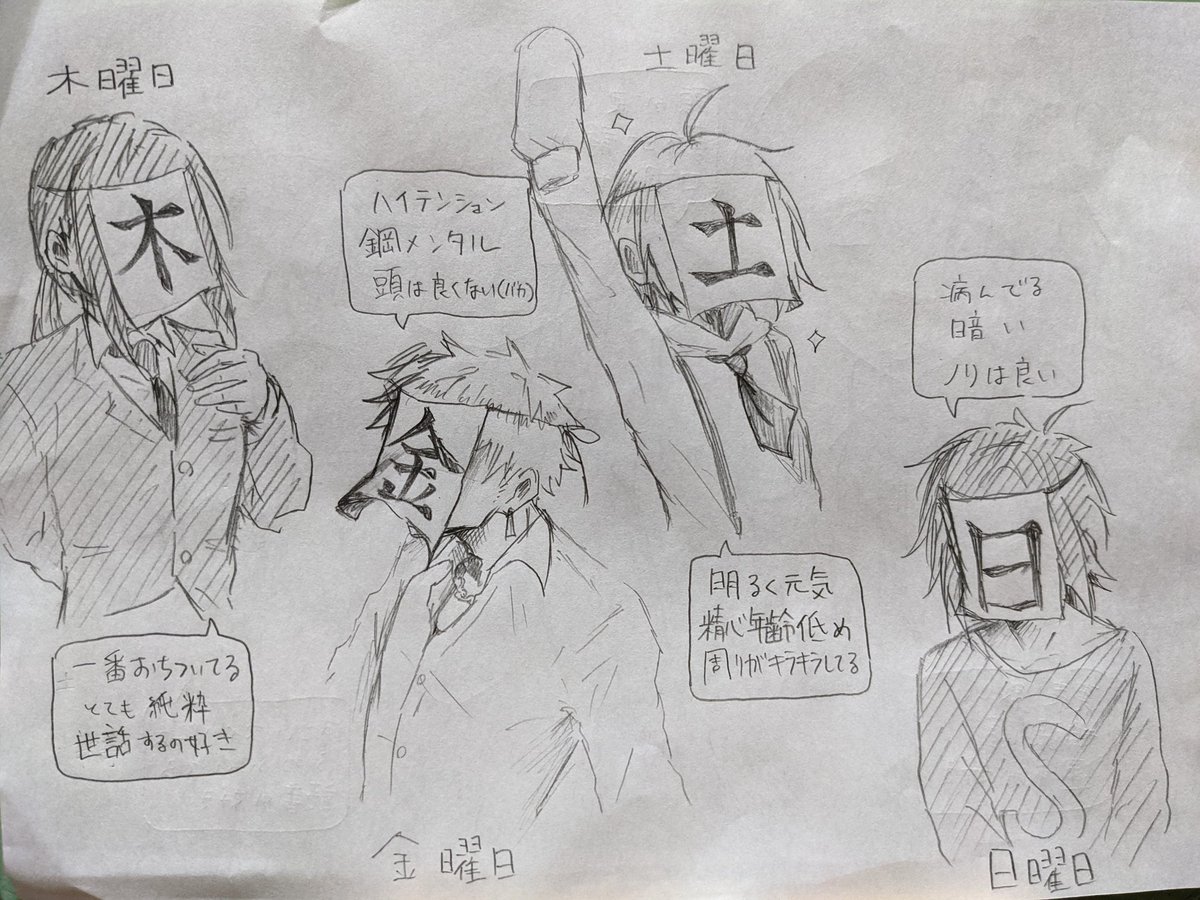 木曜日
木
一番おちついてる
とても純粋
世話するの好き
ハイテンション
鋼メンタル
頭は良くない(バカ)
金
金曜日
土曜日
土
明るく元気
精神年齢低め
周りがキラキラしてる
病んでる
暗い
ノリは良い
日
S
日曜日